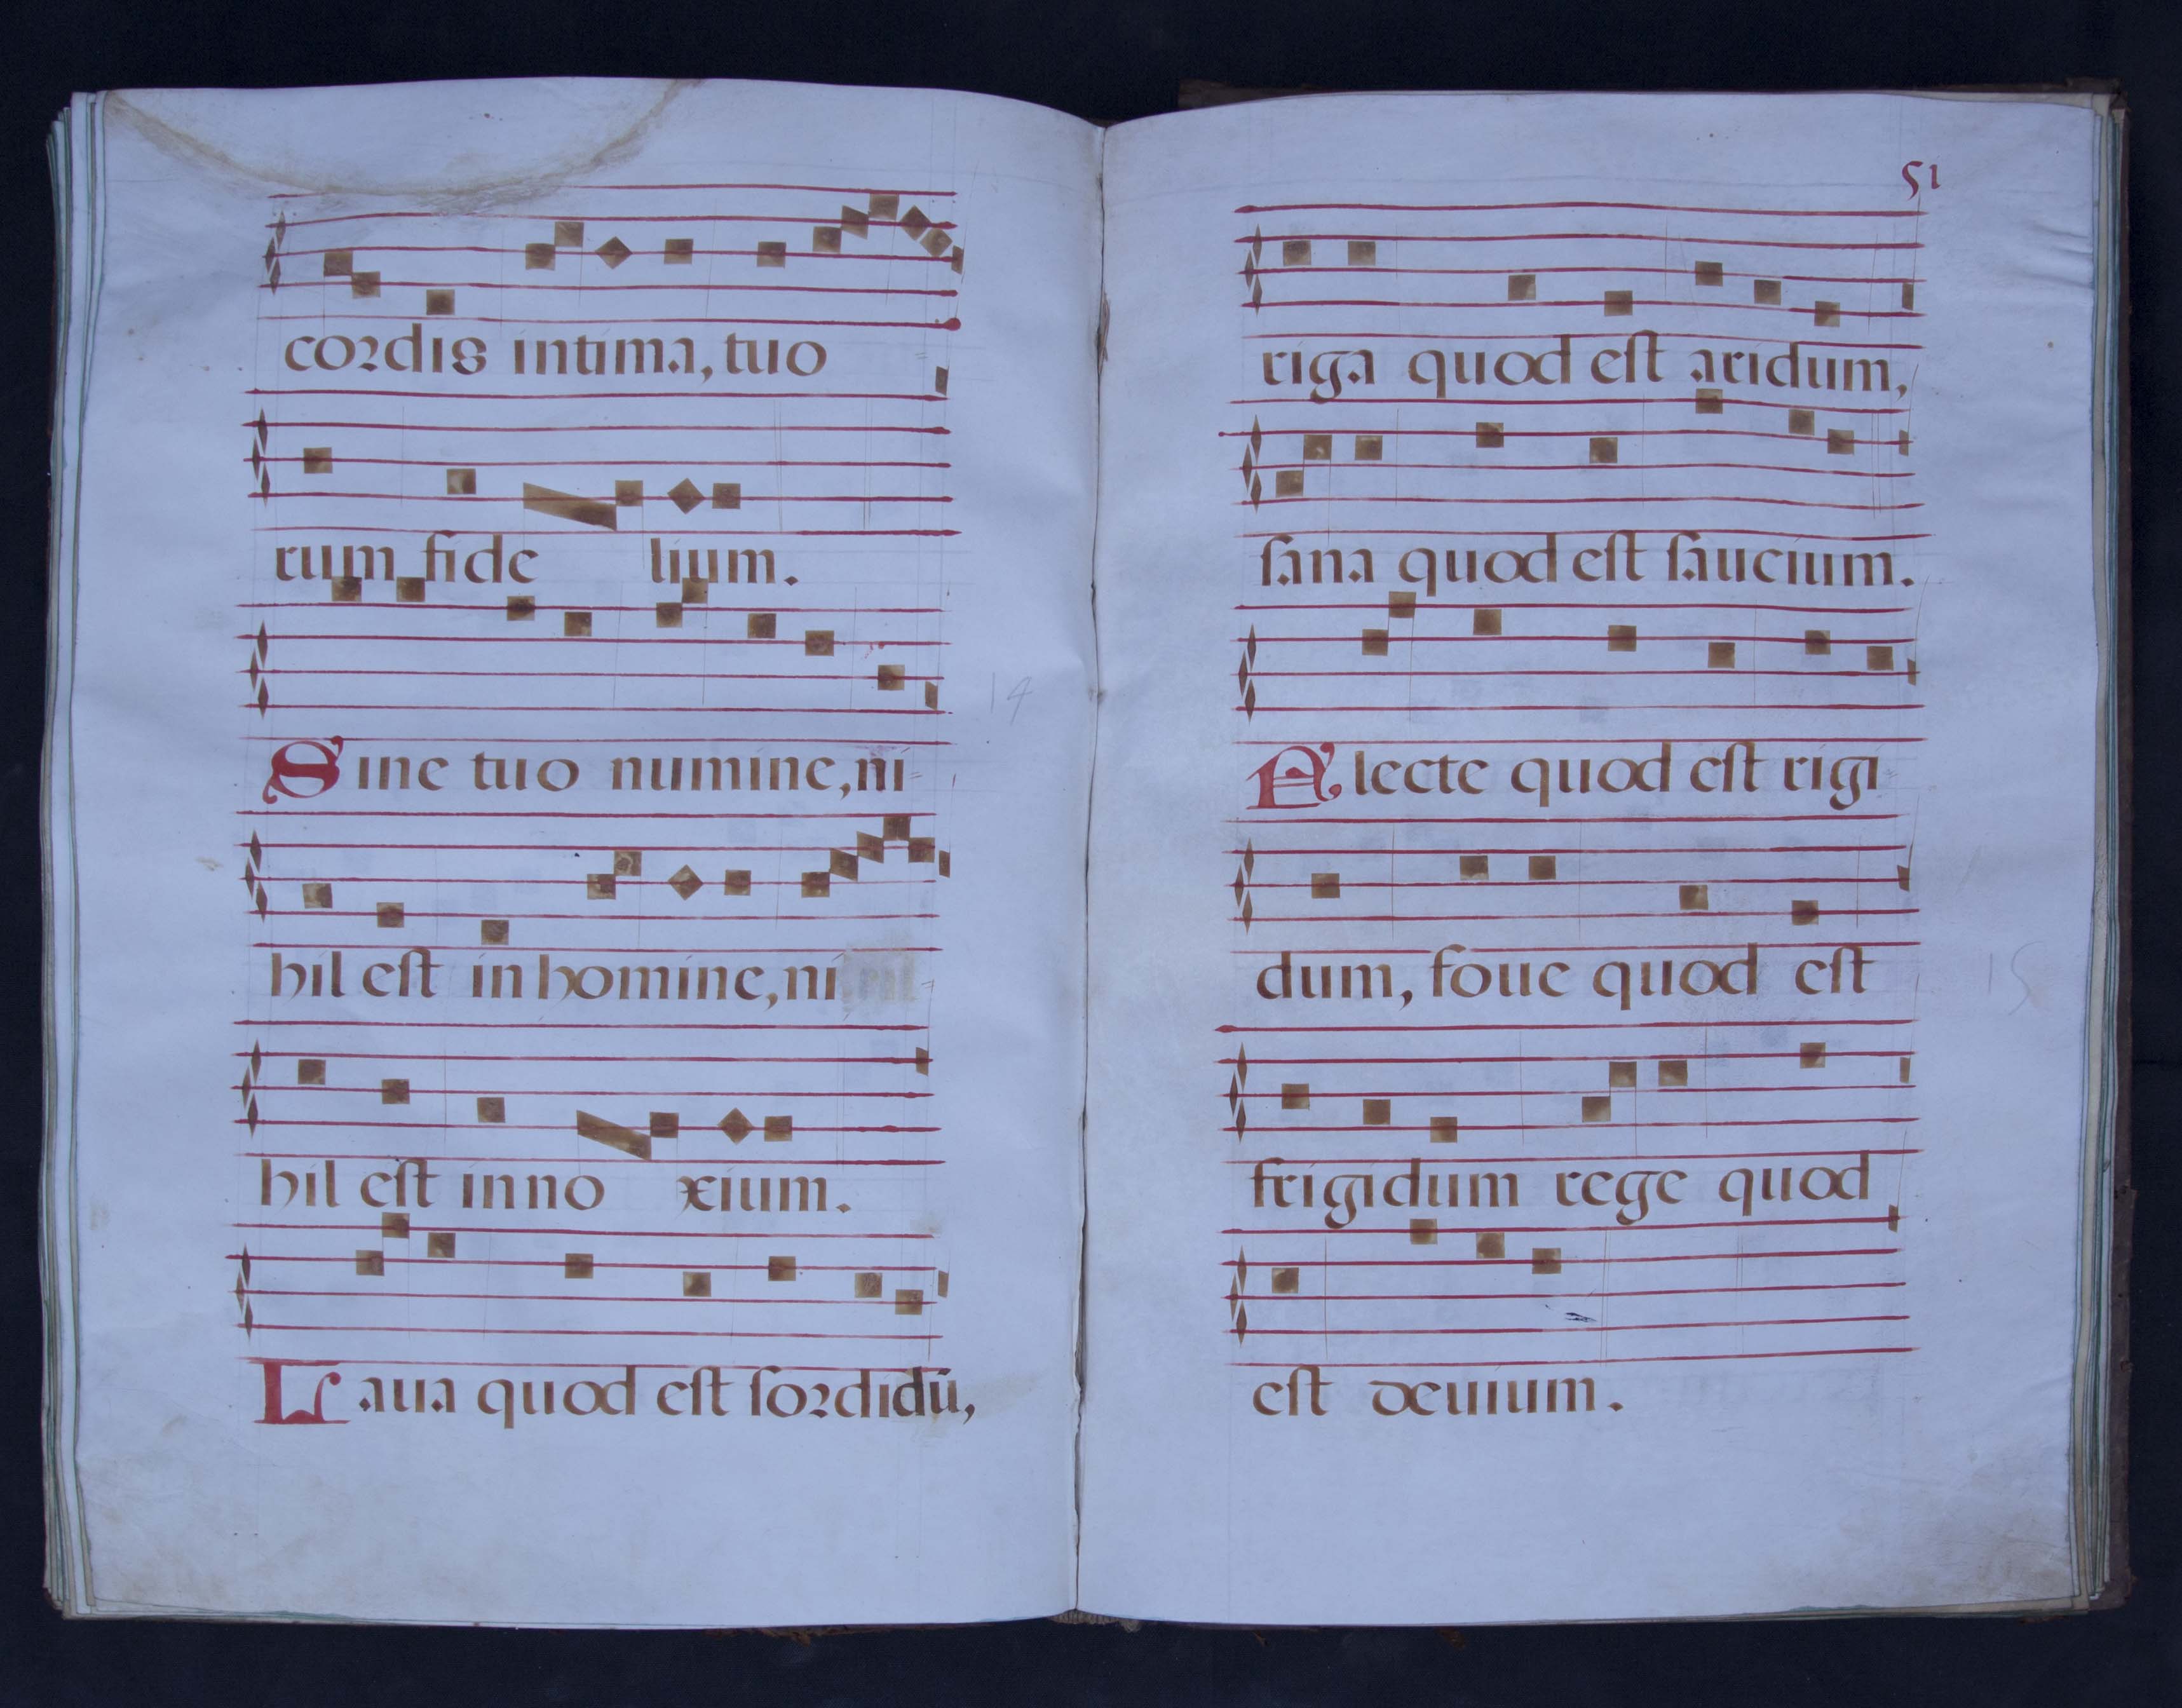 cordis intima, tuo
rum fide lium.
Sine tuo numine, ni=
hil est in homine, ni
hil est inno xium.
Laua quod est sordidū,
14
51
riga quod est aridum,
sana quod est saucium.
Flecte quod est rigi=
dum, foue quod est
frigidum rege quod
est deuium.
15